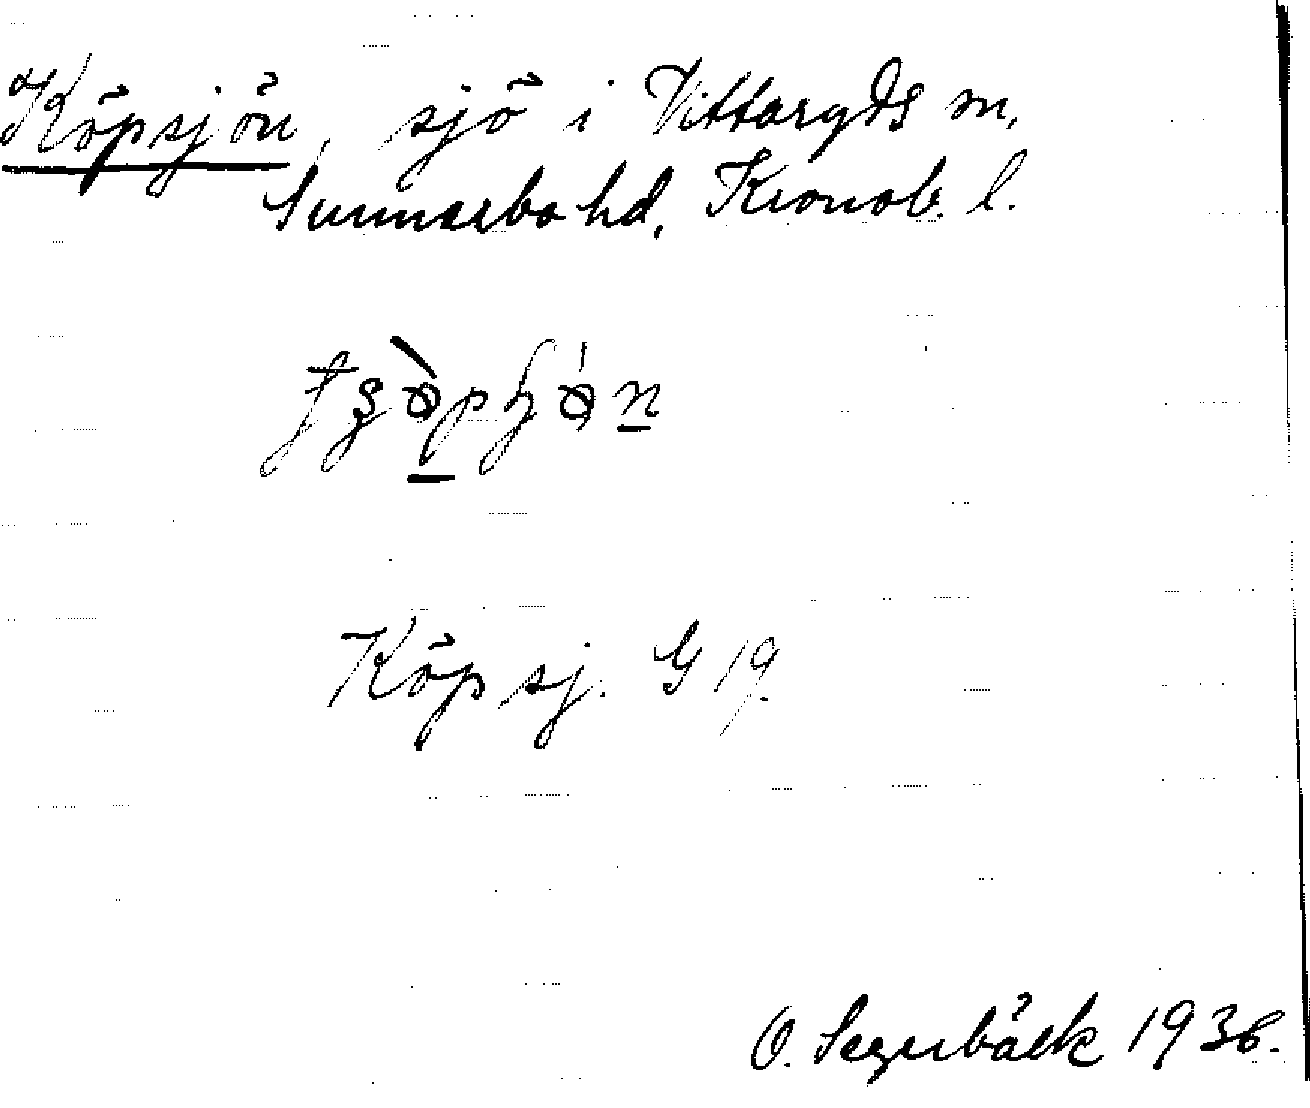 Köpsjön, sjö i Vittaryds sn,
Sunnerbo hd, Kronob. l.
Köpsj. G 19.
O. Segerbäck 1936.